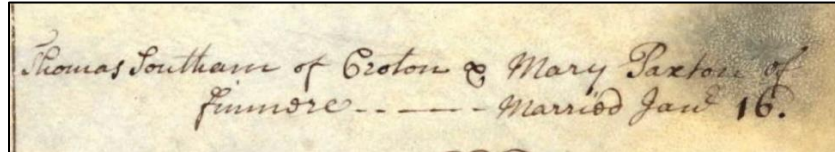 Thomas Southam of Croton & Mary Paxton of
finmore - - - - - Married Janʳ 16.